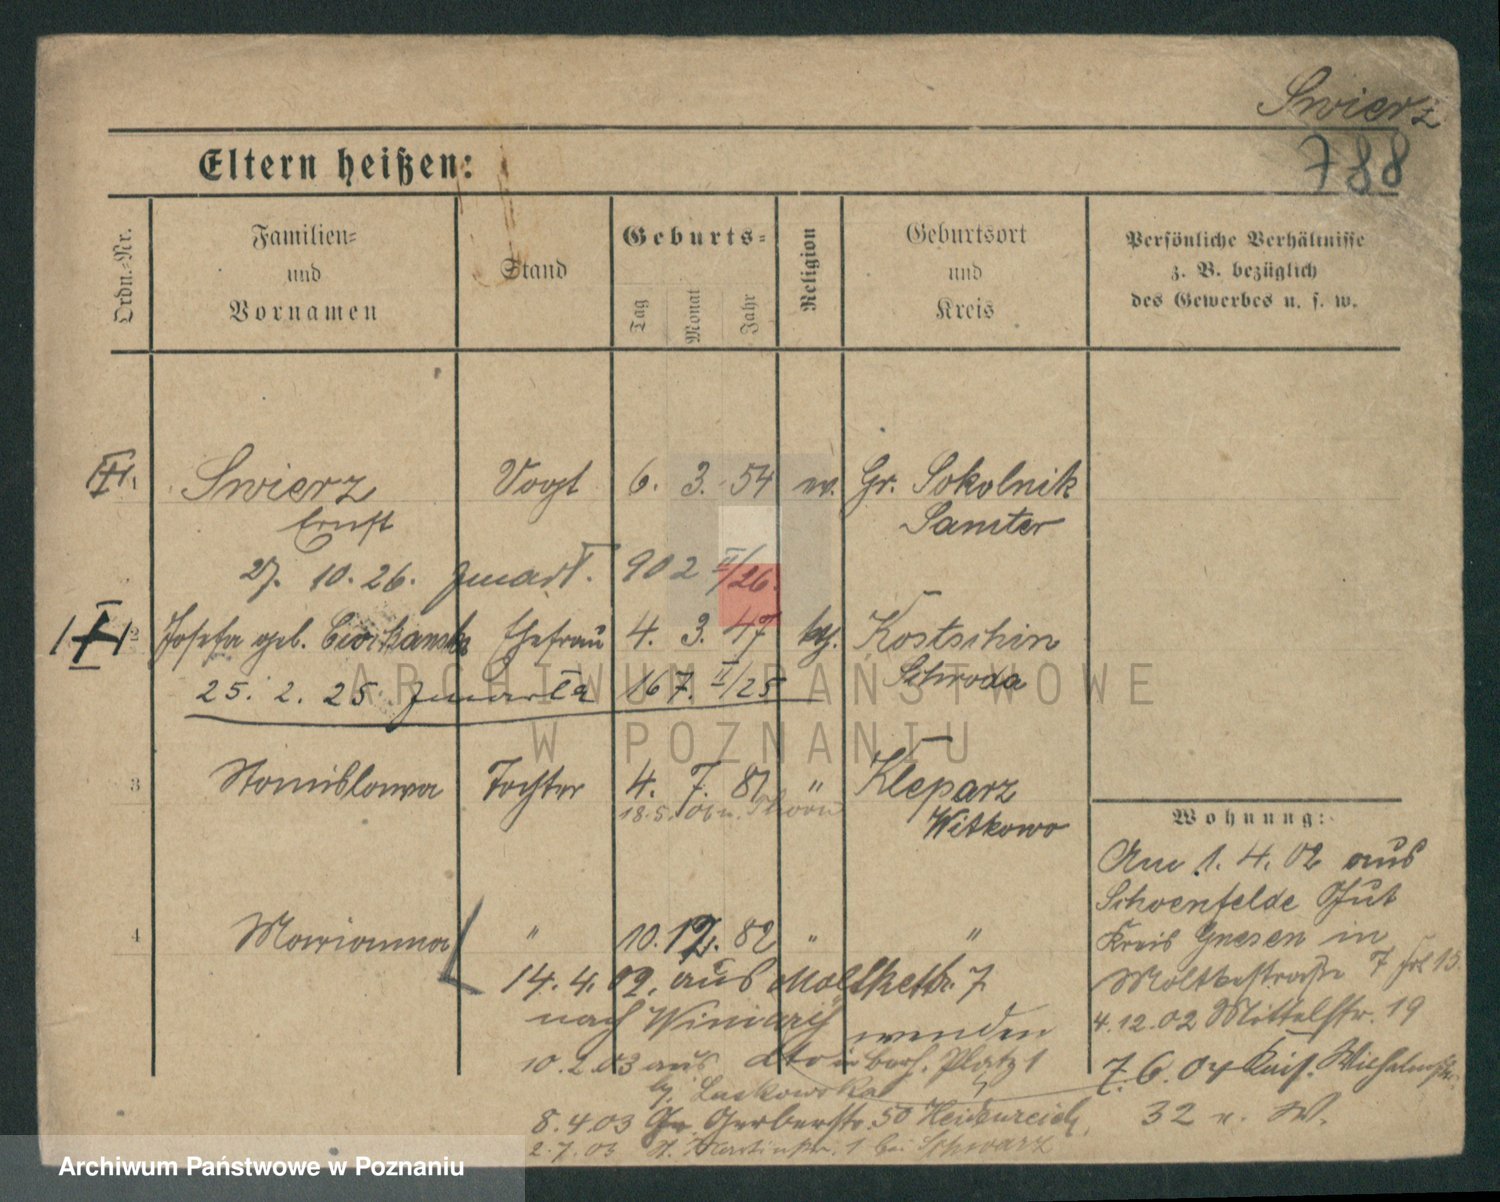 Swierz
788
Eltern heißen:
Ordn.-Nr.
Familien-
und
Vornamen
Stand
Geburts-
Tag
Monat
Jahr
Religion
Geburtsort
und
Kreis
Persönliche Verhältnisse
z. B. bezüglich
des Gewerbes u. s. w.
1 Swierz Vogt 6. 3. 54 ev. Gr. Sokolnik
Ernst Samter
27. 10. 26. zmarł. 902 II/26.
2 Josefa geb. Ehefrau 4. 3. 47 kth. Kostschin
Schroda
25. 2. 25 zmarła 167. II/25
3 Stanislawa Tochter 4. 7. 81 " Kleparz
18.5. 06 n. Thorn
Witkowo
4 Marianna " 10. 12. 82 " "
14. 4. 02. aus Moltkestr. 7
nach Winiary
10.2.03 aus Platz 1
bj. Laskowska
8.4.03 Gr. Gerberstr. 50 Heidenreich
2.7.03 St. Martinstr. 1 bei Schwarz
Wohnung:
Am 1. 4. 02 aus
Schoenfelde Gut
Kreis Gnesen in
Moltkestraße 7
4.12.02 Mittelstr. 19
7. 6. 04 Wilhelmstr.
32 n. W.
ARCHIWUM PAŃSTWOWE
W POZNANIU
Archiwum Państwowe w Poznaniu